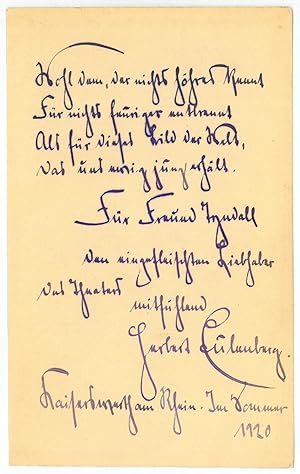 Wohl dem, der nichts höhres kennt
Für nichts feuriger entbrennt
Als für dieses Bild der Welt,
Das uns ewig jung erhält.
Für Freund Tyndall
den eingefleischten Liebhaber
des Theaters
mitfühlend
Herbert Eulenberg.
Kaiserswerth am Rhein. Im Sommer
1920